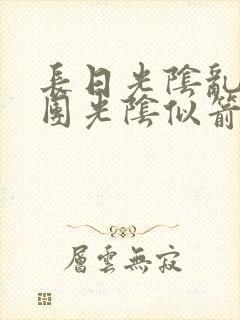 長日光陰亂
團光陰似箭
層雲無寂